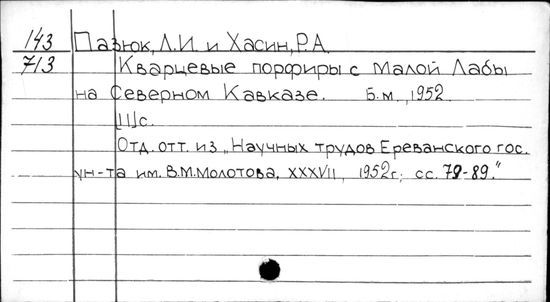 143 Пазюк, Л.И. и Хасин, Р.А.
713 Кварцевые порфиры с Малой Лабы
на Северном Кавказе. Б.м., 1952.
[11]с.
Отд. отт. из „Научных трудов Ереванского гос.
ун-та им. В.М.Молотова, XXXVII, 1952г.; сс. 79-89."